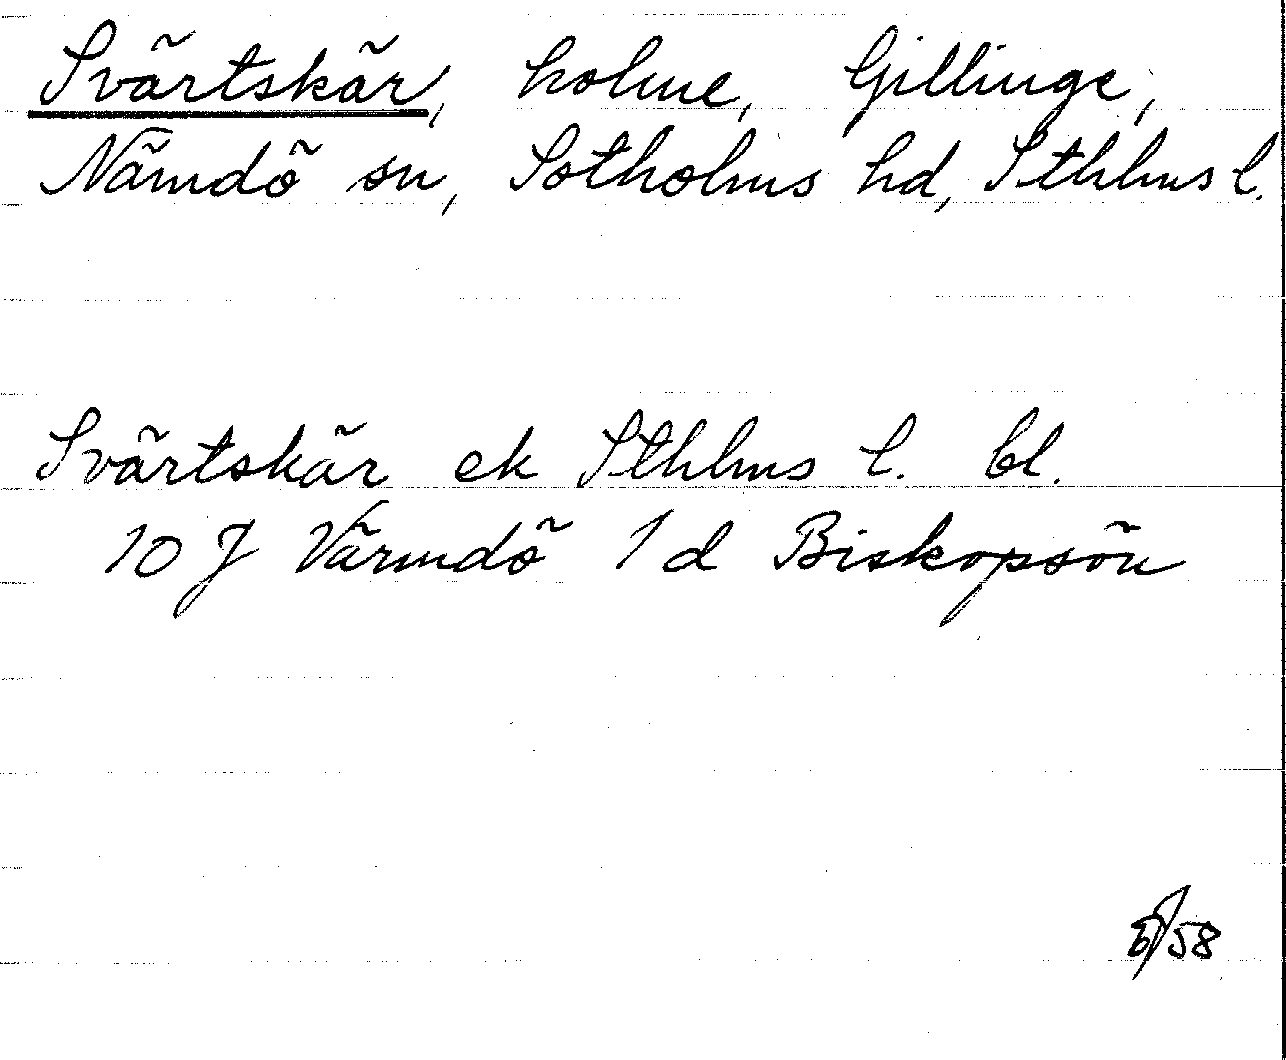 Svärtskär, holme, Gillinge,
Nämdö sn, Sotholms hd, Sthlms l.
Svärtskär ek Sthlms l. bl.
10 J Värmdö 1 d Biskopsön
/58